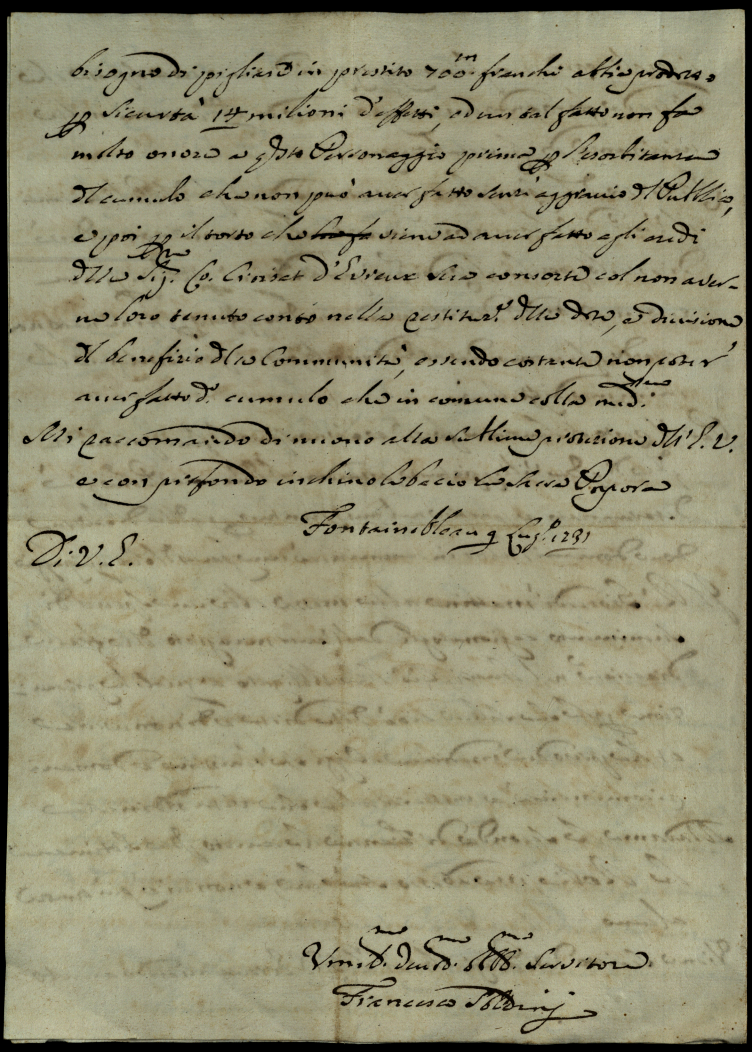 bisogno di pigliare in prestito 700.m franchi abbia prodotto
p sicurtà 14 milioni d'effetti, ed un tal fatto non fa
molto onore a qsto Personaggio prima p l'esorbitanza
del cumulo che non può aver fatto senz'aggravio del Publico,
e poi p il torto che viene ad aver fatto agli eredi
della Sig.ra Co. Croisat d'Evieux sua consorte col non aver-
ne loro tenuto conto nella restituz.e della dote, e divisione
del benefizio della Communità, essendo costante non poter
aver fatto d.o cumulo che in comune colla med.ma
Mi raccomando di nuovo alla sublime protezione dell'E. V.
e con profondo inchino le bacio la Sacra Porpora
Fontainebleau 9 Lugl.o 1731
Di V. E.
Umil.mo Dev.mo Obb.mo Servitore
Francesco